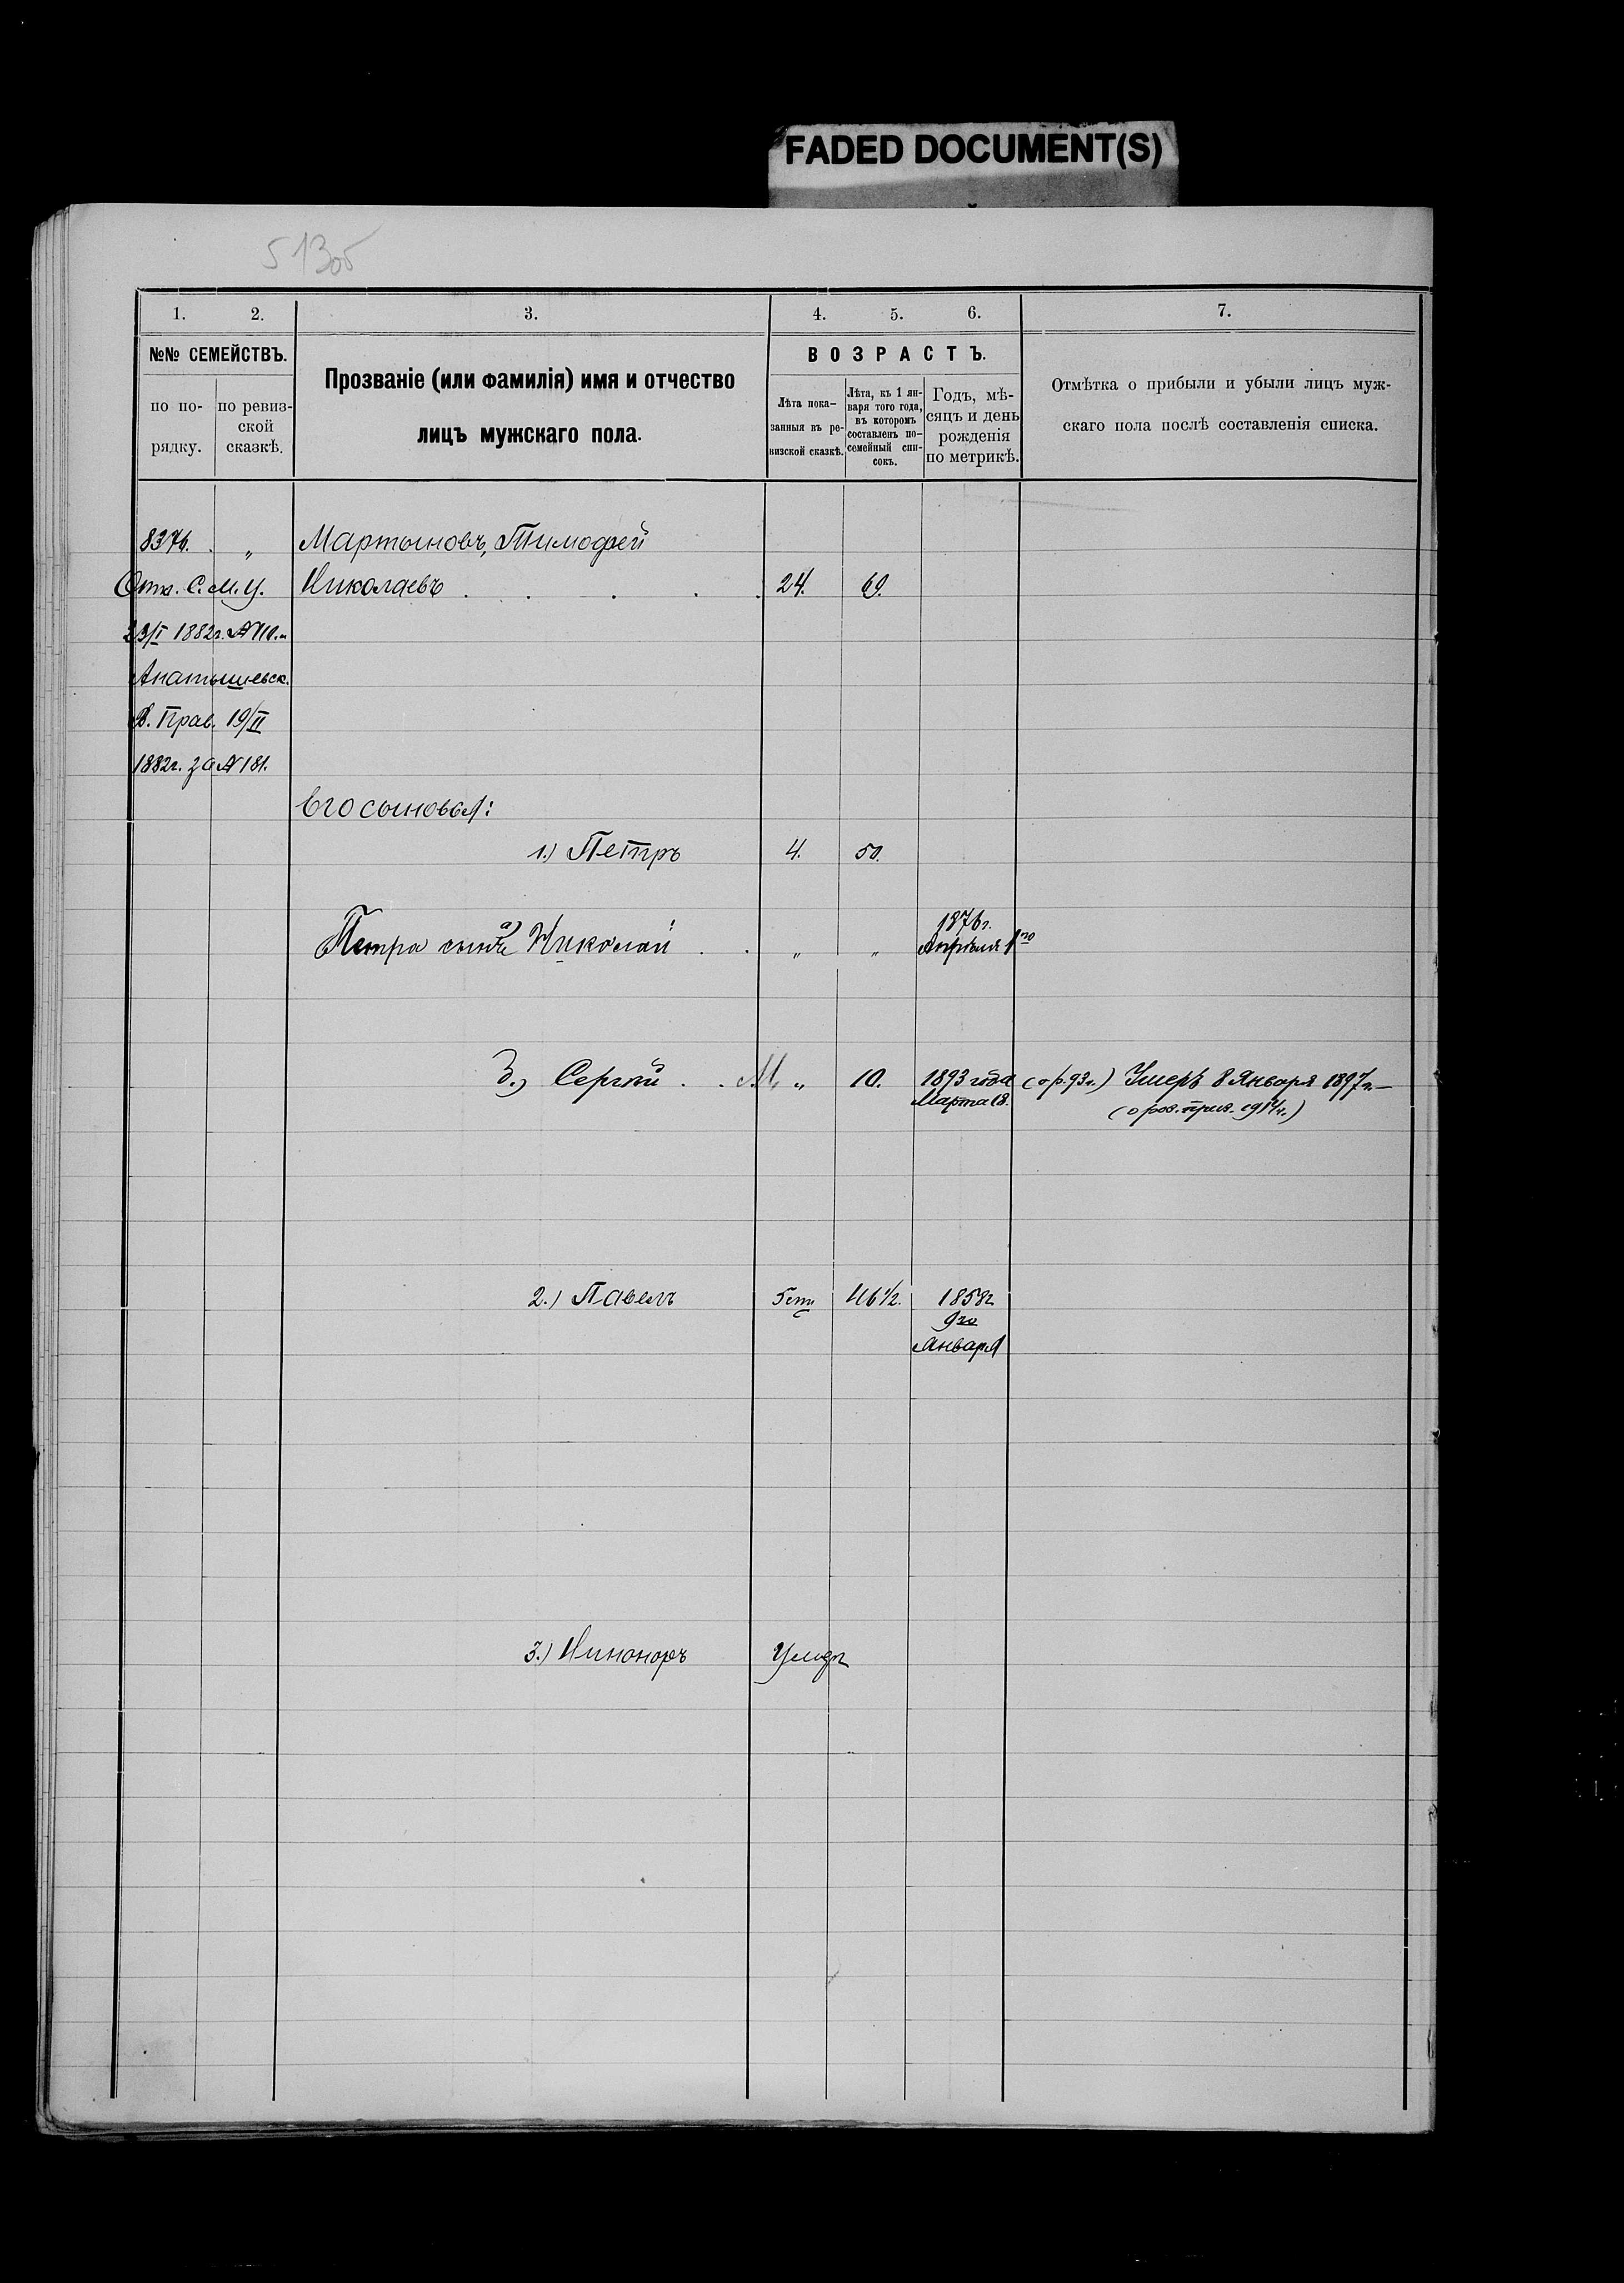 FADED DOCUMENT(S)
513об
1. 2. 3. 4. 5. 6. 7.
№№ СЕМЕЙСТВЪ.
по по-
рядку.
по ревиз-
ской
сказкѣ.
Прозваніе (или фамилія) имя и отчество
лицъ мужскаго пола.
ВОЗРАСТЪ.
Лѣта пока-
занныя въ ре-
визской сказкѣ.
Лѣта, къ 1 ян-
варя того года,
въ которомъ
составленъ по-
семейный спи-
сокъ.
Годъ, мѣ-
сяцъ и день
рожденія
по метрикѣ.
Отмѣтка о прибыли и убыли лицъ муж-
скаго пола послѣ составленія списка.
8376. „ Мартыновъ, Тимофей
Отн. С. М. У. Николаевъ 24. 69.
23/I 1882г. №110.
В. Прав. 19/II
1882г. за №181.
Его сыновья:
1.) Петръ 4. 50.
1876г.
Петра сынъ а) Николай „ „ Апрѣля 1го
Сергѣй М. „ 10. 1893 года (о р. 93г.) Умеръ 8 Января 1897г.—
Марта 18.
2.) Павелъ 5ти 46 1/2. 1858г
9го
Января
3.) Никаноръ Умеръ